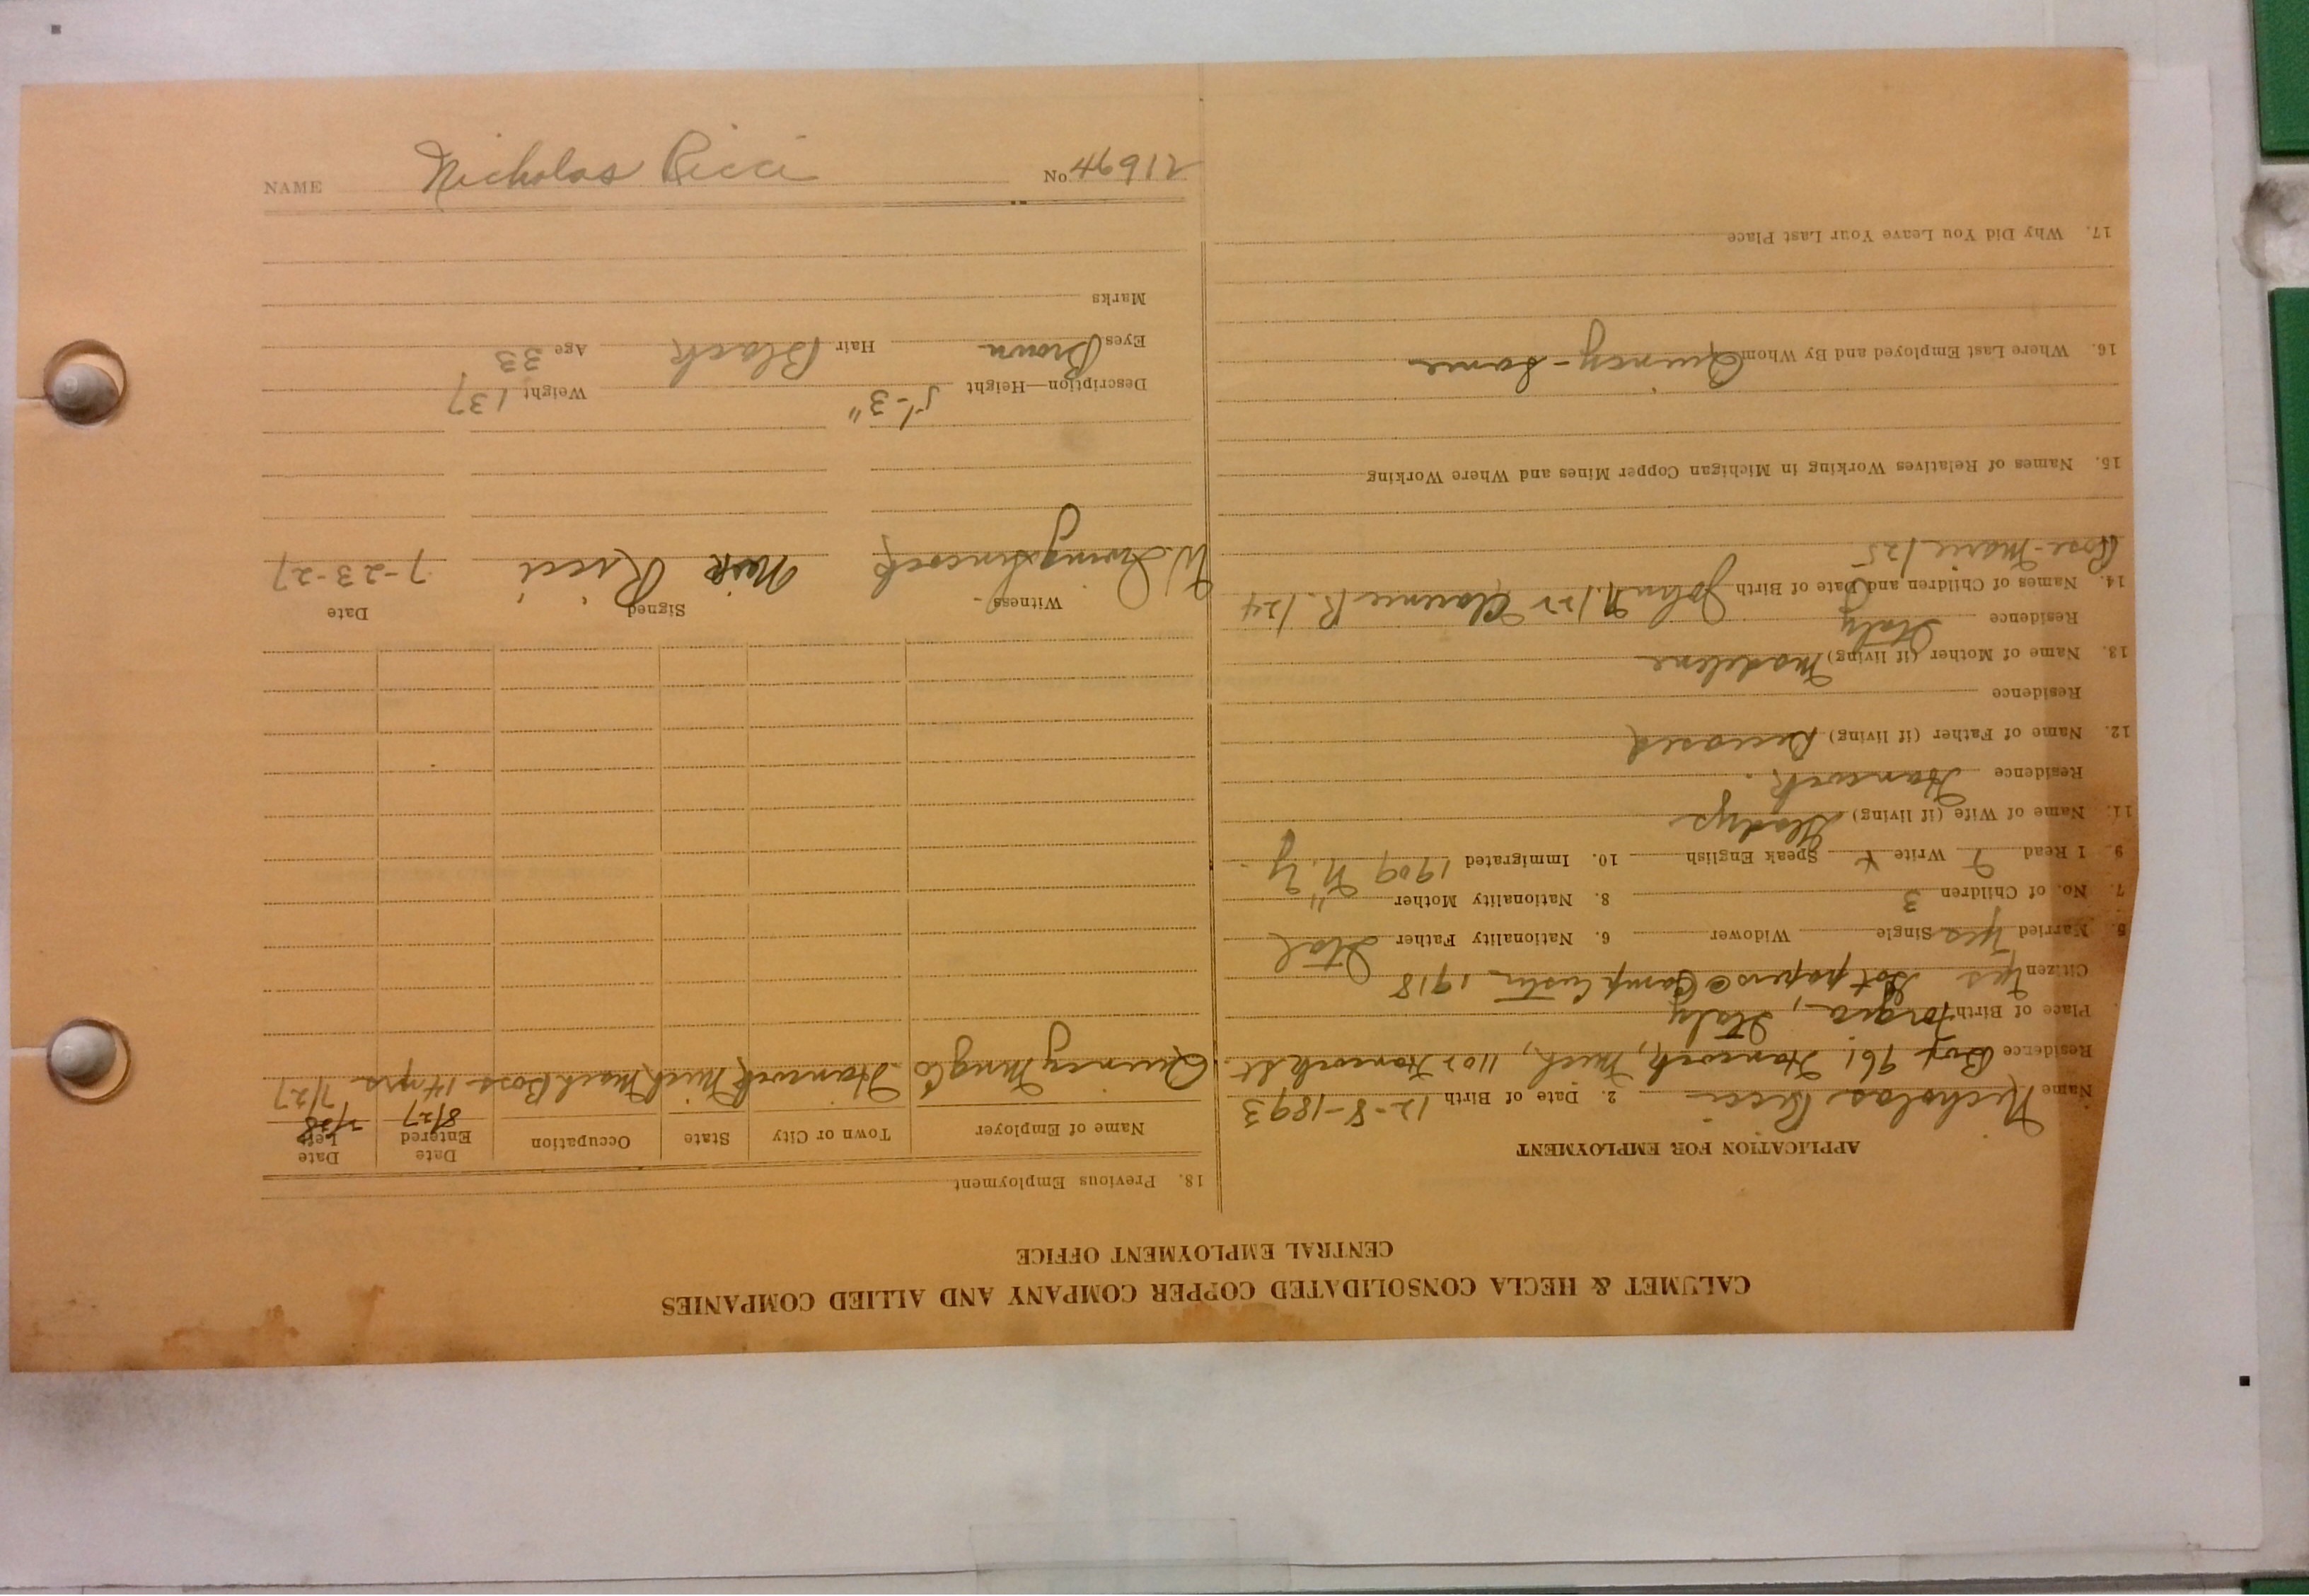 NAME Nicholas Ricci No 46912
CALUMET & HECLA CONSOLIDATED COPPER COMPANY AND ALLIED COMPANIES
CENTRAL EMPLOYMENT OFFICE
APPLICATION FOR EMPLOYMENT
Name Nicholas Ricci 2. Date of Birth 12-8-1893
Residence Box 761 Hancock, Mich, 1102 Hancock St.
Place of Birth Italy
Citizen Yes Got papers @ Camp Custer 1918
5. Married Yes Single Widower 6. Nationality Father Ital
7. No. of Children 3 8. Nationality Mother "
9. I Read Write Speak English 10. Immigrated 1909 N.Y.
11. Name of Wife (if living) Gladys
Residence Hancock.
12. Name of Father (if living) Deceased
Residence
13. Name of Mother (if living) Madelene
Residence Italy
14. Names of Children and Date of Birth John N. /22 Clarence R. /24
Rose-Marie /25
15. Names of Relatives Working in Michigan Copper Mines and Where Working
16. Where Last Employed and By Whom Quincy - Same
17. Why Did You Leave Your Last Place
18. Previous Employment
Name of Employer Town or City State Occupation Date Entered Date Left
8/27 2/28
Quincy Mng Co Hancock Mich Mach Boss 14 yrs 7/27
Witness Signed Date
W. Nick Ricci 7-23-27
Description—Height 5'-3" Weight 137
Eyes Brown Hair Black Age 33
Marks